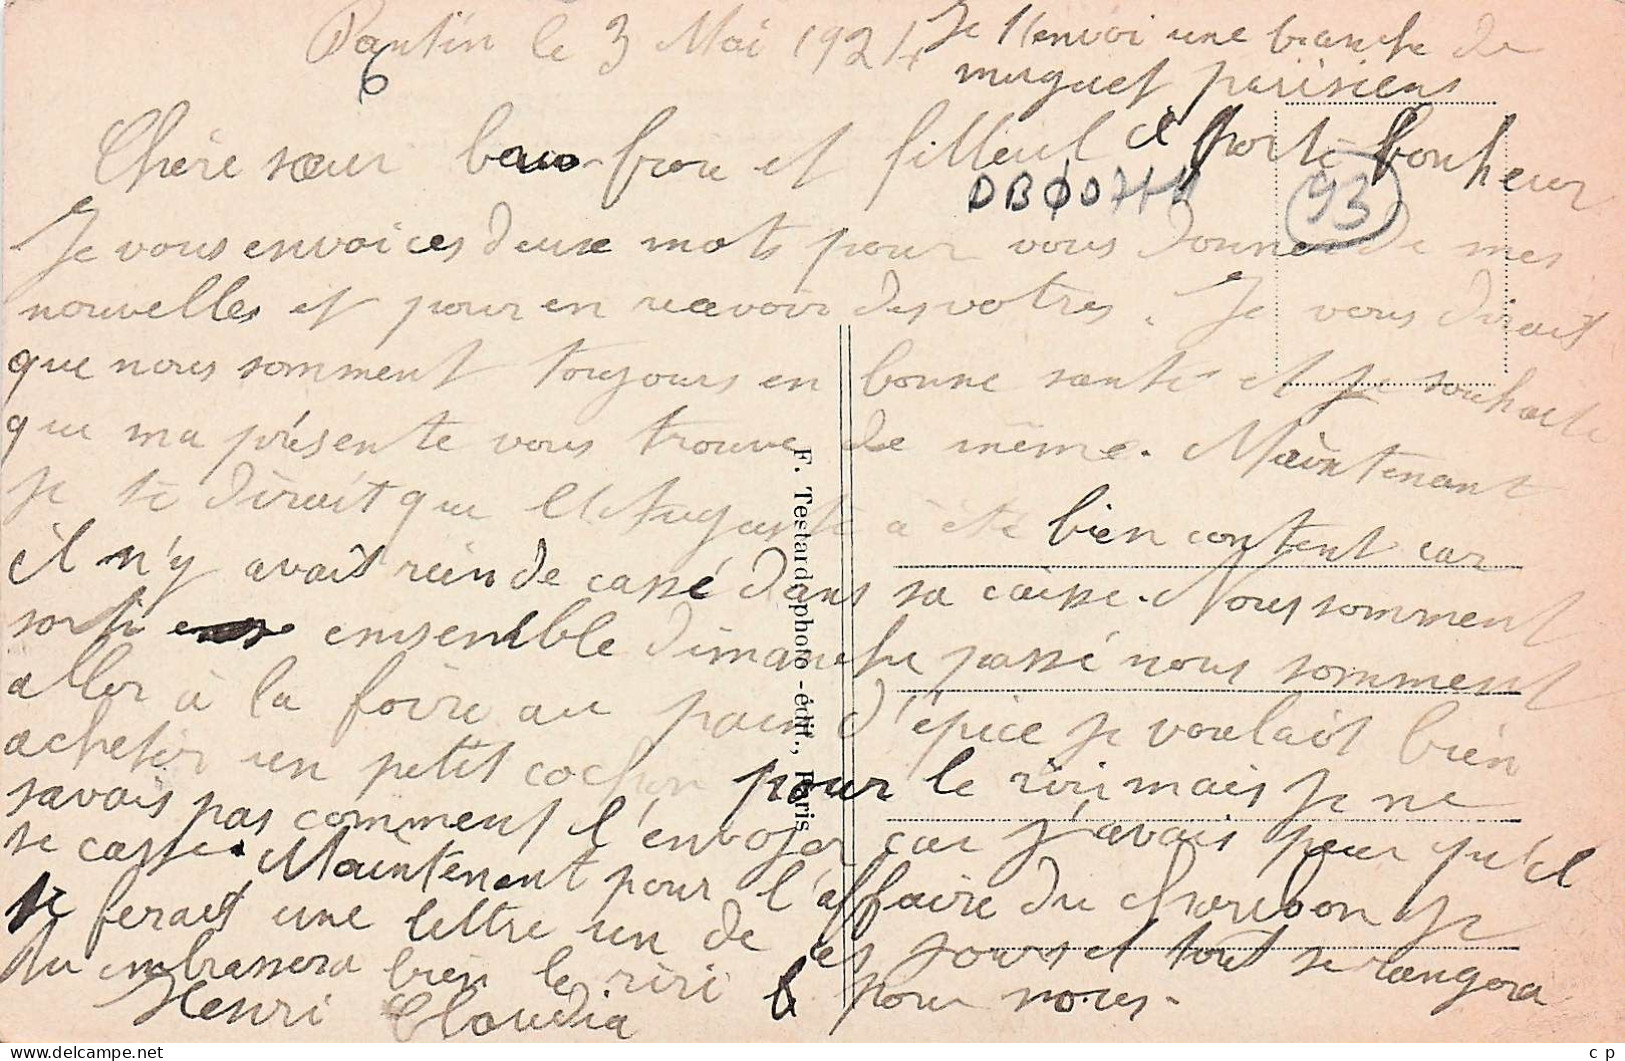 Pantin le 3 Mai 1924
6
Je t'envoi une branche de
muguet parisiens
et porte bonheur
Chère sœur beau-frère et filleul
93
Je vous envoi ces deux mots pour vous donner de mes
nouvelles et pour en recevoir des votres. Je vous dirait
que nous somment toujours en bonne santé et je souhaite
que ma présente vous trouve de même. Maintenant
je te dirait que à été bien content car
il n'y avait rien de cassé dans sa caisse. Nous somment
sorti ensemble dimanche passé nous somment
aller à la foire au pain d'épice je voulait bien
acheter un petit cochon pour le riri mais je ne
savais pas comment l'envoyer car j'avais peur qu'il
se casse. Maintenant pour l'affaire du charbon je
te ferait une lettre un de ces jours et tout se rangera
du embrassera bien le riri pour nous.
Henri Claudia
F. Testard, photo-édit., Paris
c p